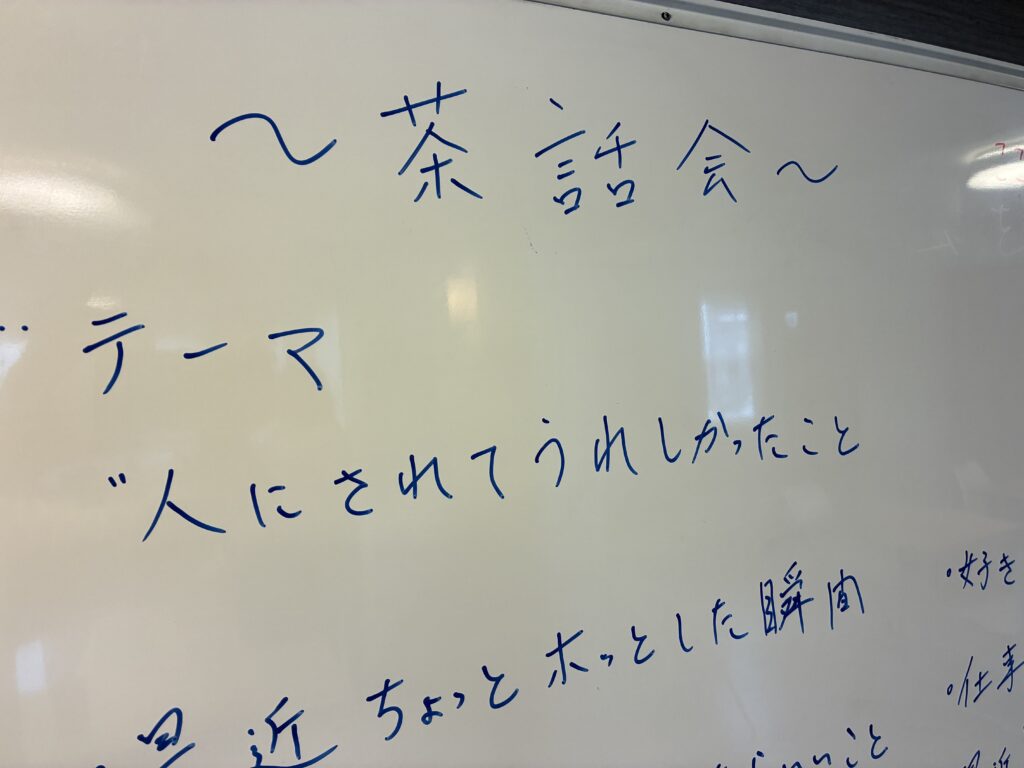 ～茶話会～
テーマ
"人にされてうれしかったこと
最近ちょっとホッとした瞬間
いいこと
・好き
・仕事
最近